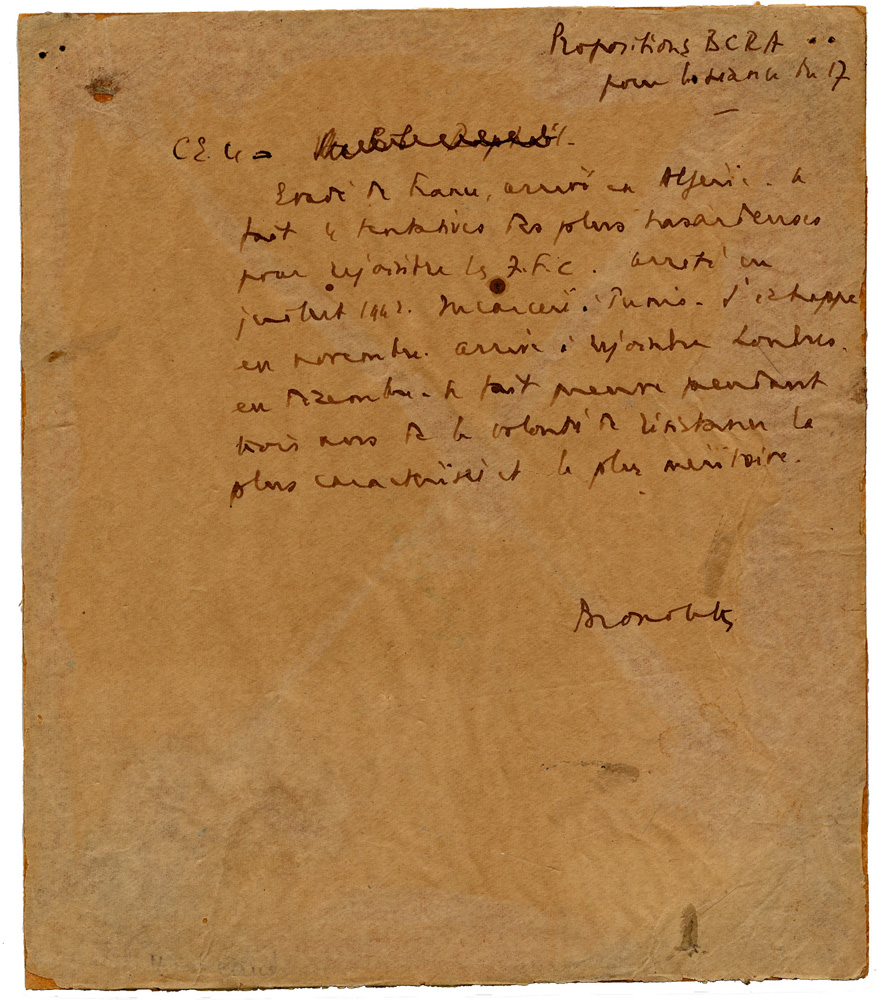 Propositions BCRA
pour la séance du 17
CE. 4
Evadé de France, arrivé en Algérie. a
fait 4 tentatives des plus hasardeuses
pour rejoindre les F.F.C. arrêté en
juillet 1942. Incarcéré à Tunis. S'échappe
en novembre. arrive à rejoindre Londres
en décembre. a fait preuve pendant
trois mois de la volonté de résistance la
plus caractérisée et la plus méritoire.